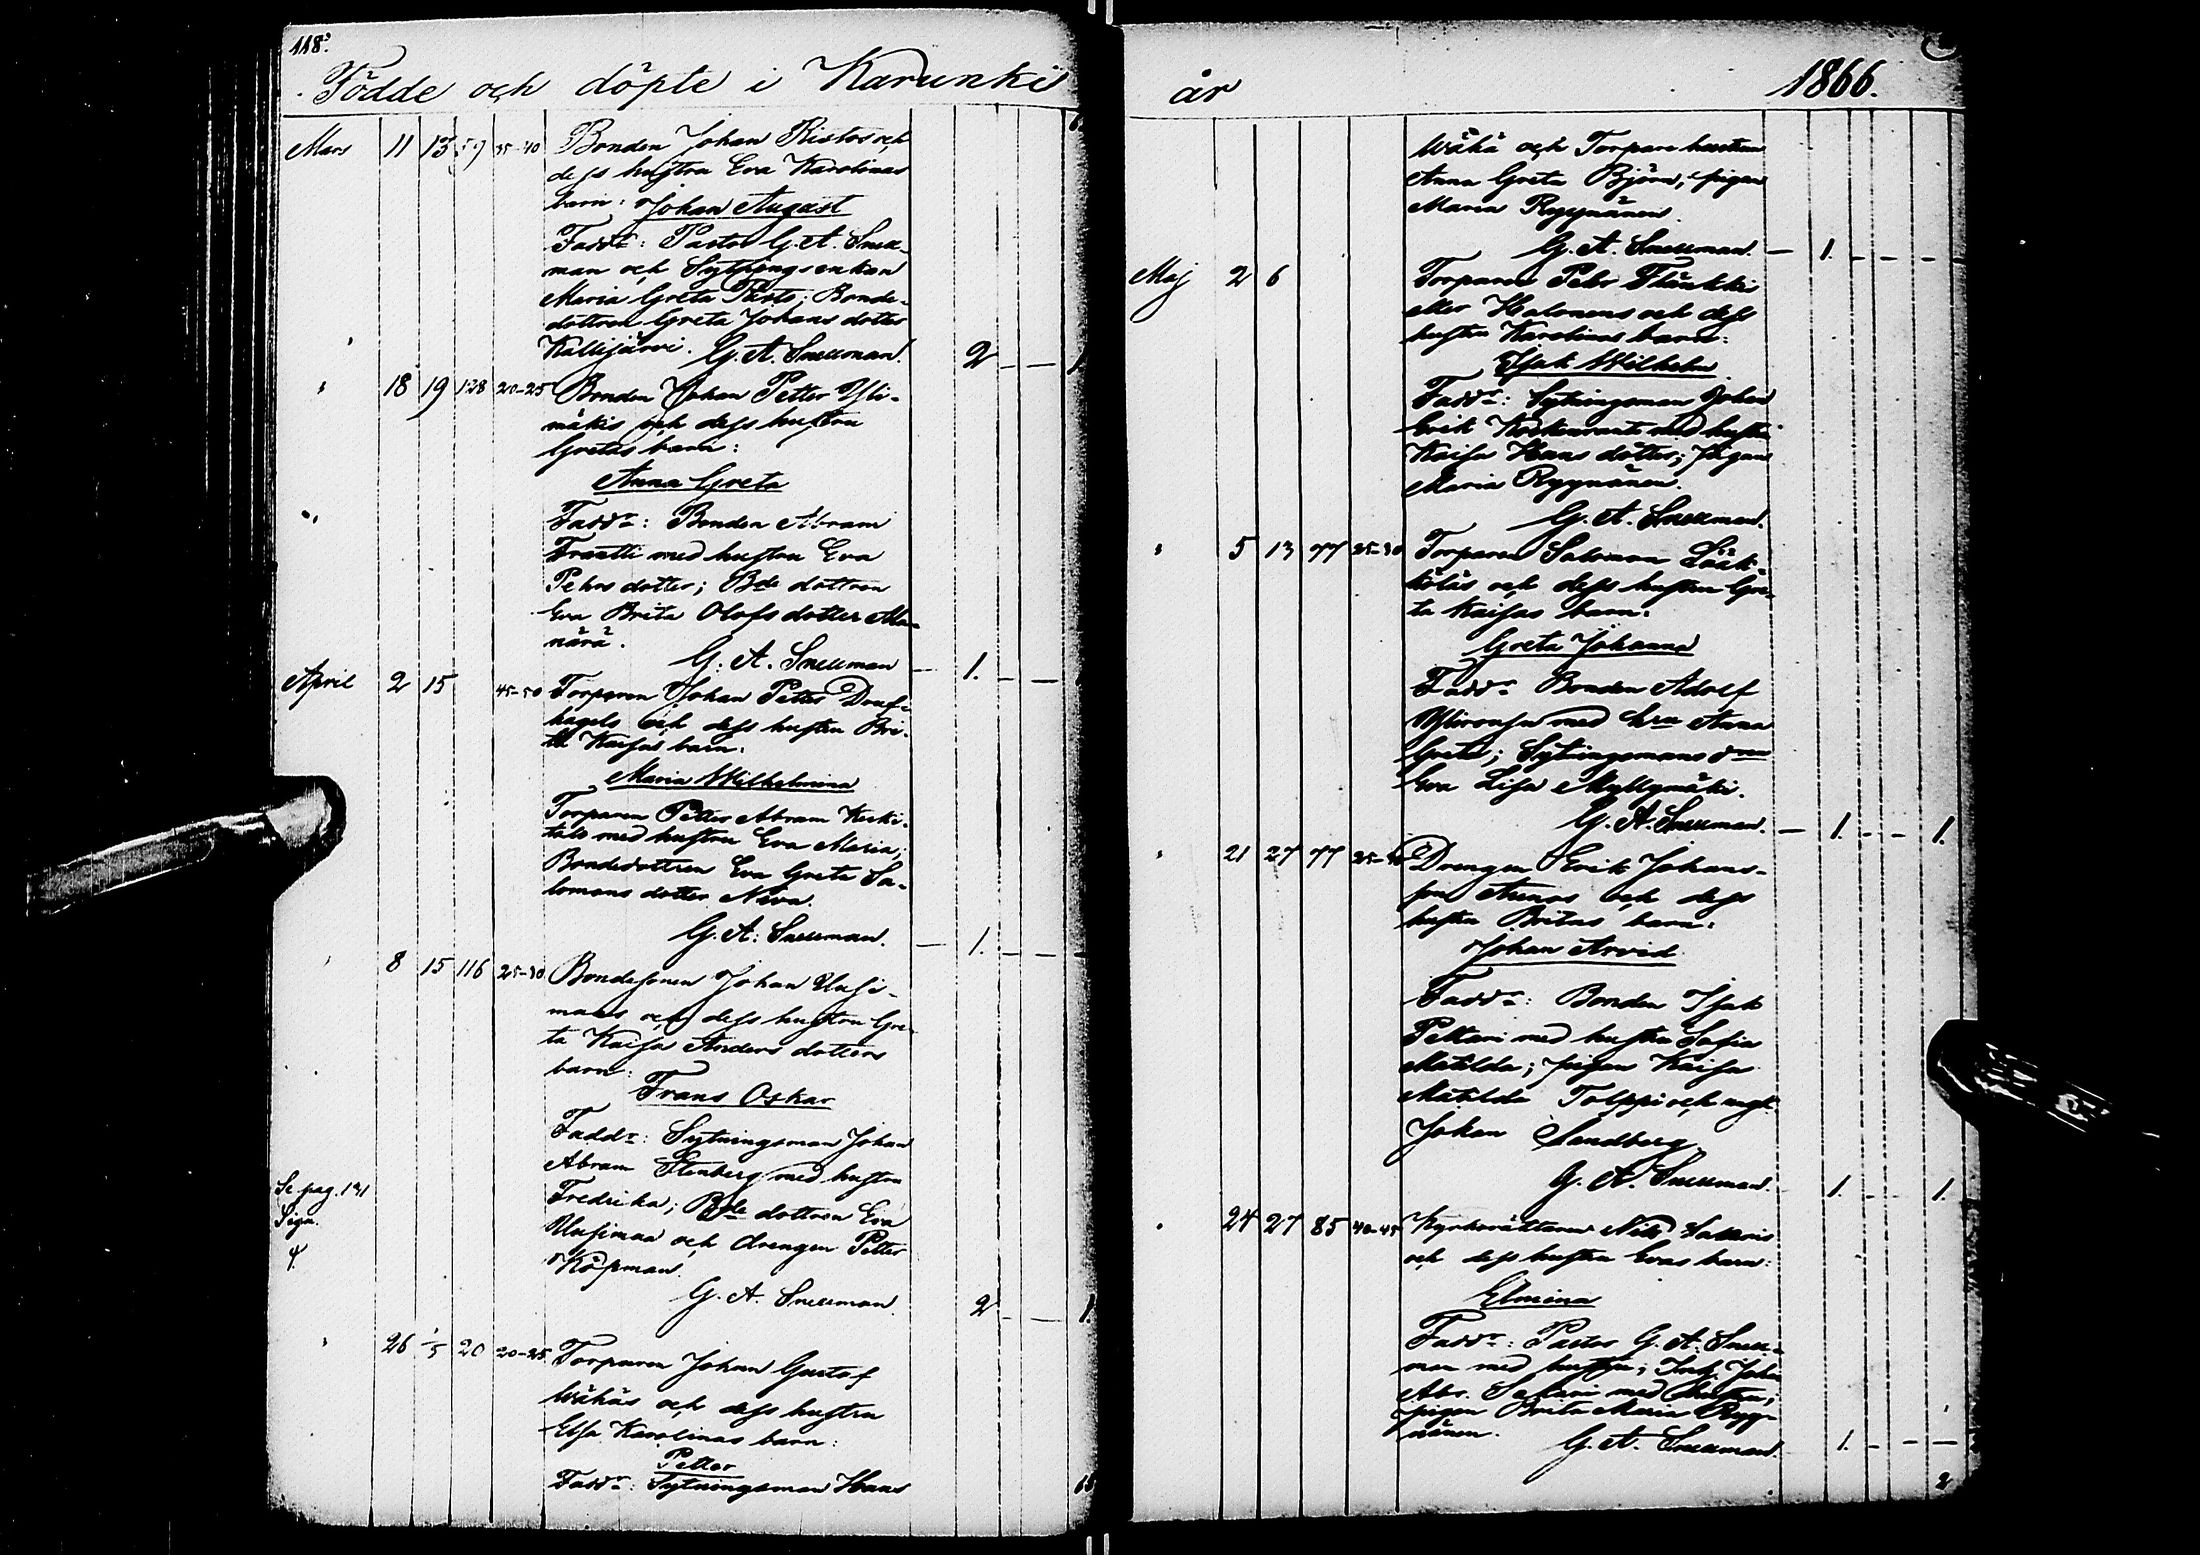 118.
Födde och döpte i Karunki
Mars 11 13 59 35-40 Bonden Johan Ristos och
dess hustru Eva Karolinas
barn: Johan August
Faddr: Pastor G. A. Snell-
man och Sytningsenkan
Maria Greta Risto; Bonde-
dottren Greta Johans dotter
Kallijärvi. G. A. Snellman. 2 — — 1
" 18 19 128 20-25 Bonden Johan Petter Yli-
mäkis och dess hustru
Gretas barn:
Anna Greta
Faddr: Bonden Abram
Frantti med hustru Eva
Pehrs dotter; Bde dottren
Eva Brita Olofs dotter Ma-
närä.
G. A. Snellman — 1. — —
April 2 15 45-50 Torparen Johan Petter Duf-
hagels och dess hustru Bri-
ta Kaisas barn:
Maria Wilhelmina
Torparen Petter Abram Keski-
talo med hustru Eva Maria;
Bondedottren Eva Greta Sa-
lomons dotter Niva.
G. A. Snellman. — 1. — — —
" 8 15 116 25-30 Bondesonen Johan Uusi-
maas och dess hustru Gre-
ta Kaisa Anders dotters
barn:
Frans Oskar
Faddr: Sytningsman Johan
Abram Stenberg med hustru
Fredrika; Bde dottren Eva
Uusimaa och drengen Petter
Köpman.
G. A. Snellman. 2 — — 1.
Se pag. 131
Sign.
" 26 1/5 20 20-25 Torparen Johan Gustaf
Wähäs och dess hustru
Elsa Karolinas barn:
Petter
Faddr: Sytningsman Hans
år 1866.
Wähä och Torpare hustrun
Anna Greta Björn; pigan
Maria Ryynänen.
G. A. Snellman. — 1. — — — —
Maj 2 6 Torparen Pehr Flänkki
eller Halonens och dess
hustru Karolinas barn:
Isak Wilhelm
Faddr: Sytningsman Johan
Erik med hustru
Kaisa Hans dotter; pigan
Maria Ryynänen.
G. A. Snellman.
" 5 13 77 25-30 Torparen Salomon Lääk-
köläs och dess hustru Gre-
ta Kaisas barn:
Greta Johanna
Faddr Bonden Adolf
Ylirousu med hru Anna
Greta; Sytningsmans dren
Eva Lisa Myllymäki.
G. A. Snellman. — 1. — — 1.
" 21 27 77 Drengen Erik Johans-
son och dess
hustru Britas barn:
Johan Arvid
Faddr: Bonden Isak
Pekkari med hustru Sofia
Matilda; pigan Kaisa
Matilda Tolppi och
Johan Sandberg
G. A. Snellman. 1. — — 1.
" 24 27 85 40-45 Kyrkovärden Nils Sakaris
och dess hustru Evas barn:
Elmina
Faddr: Pastor G. A. Snell-
man med hustru; Johan
Abr. Sakari med hustru;
pigan Brita Maria Ryy-
nänen.
G. A. Snellman. 1. — — —
2